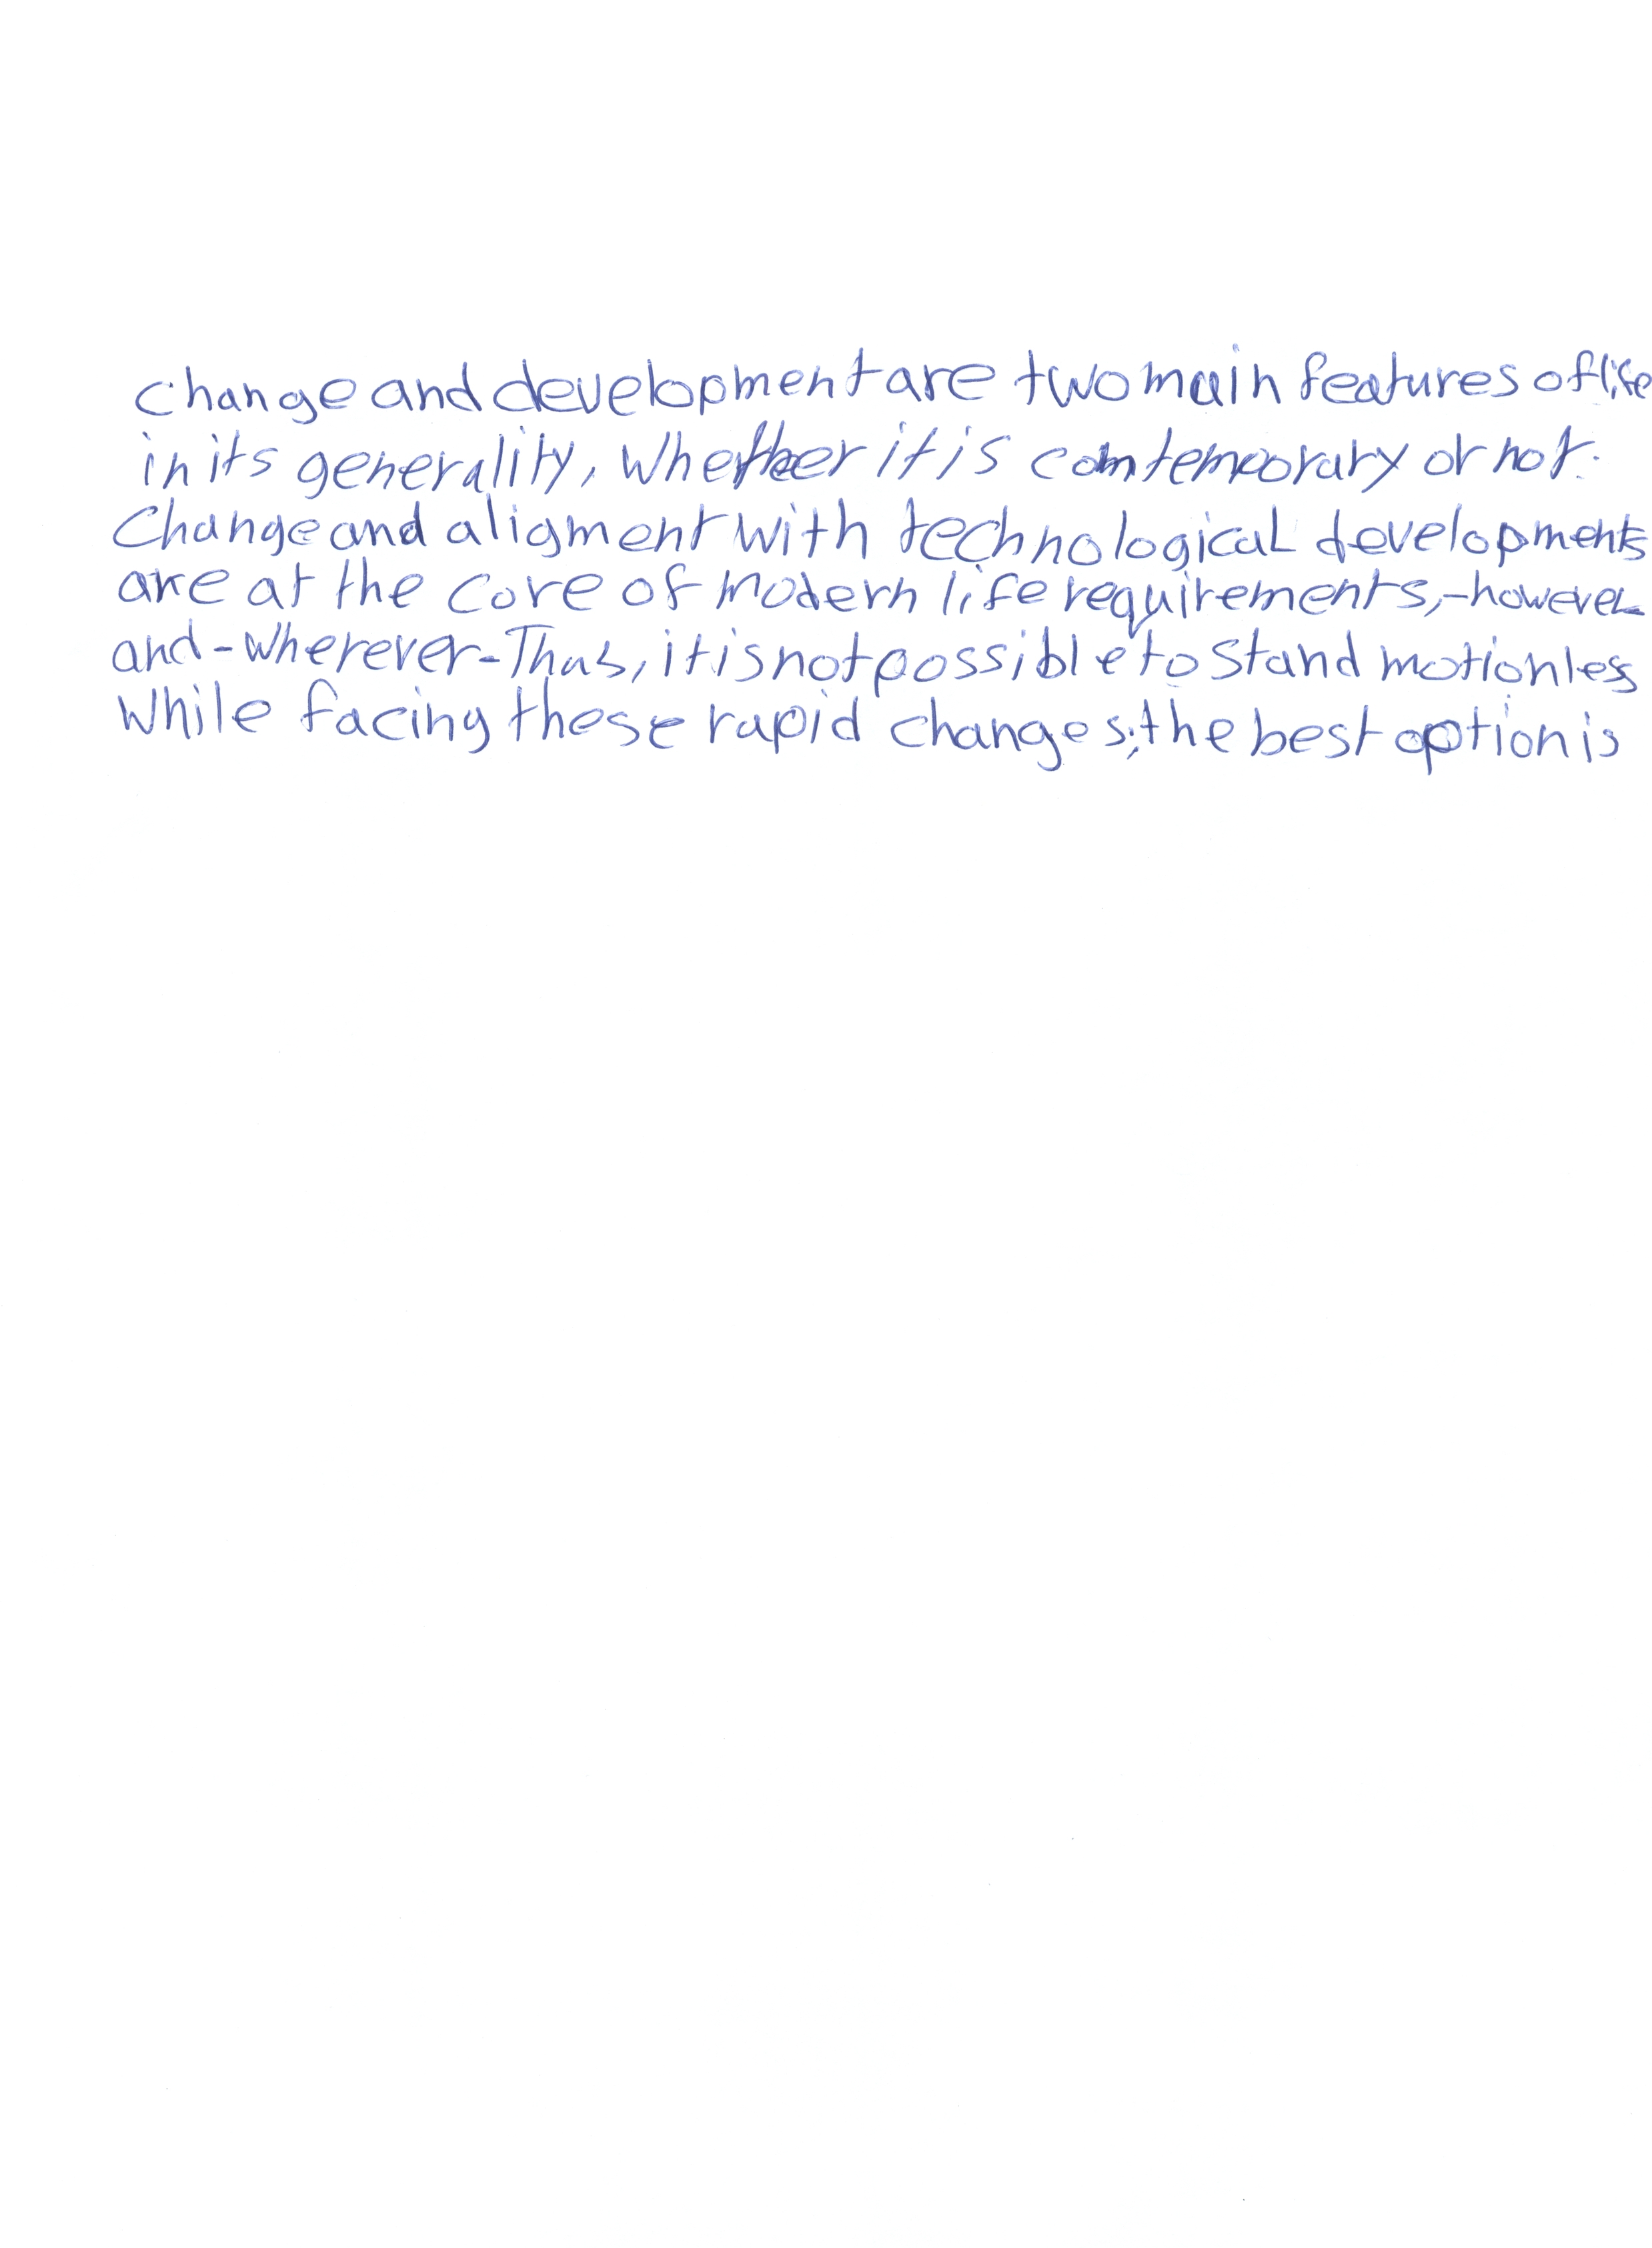 change and development are two main features of life
in its generality, whether it is comtemporary or not.
Change and aligment with technological developments
are at the core of modern life requirements,-however
and-wherever-Thus, it is not possible to stand motionless
While facing these rapid changes;the best option is